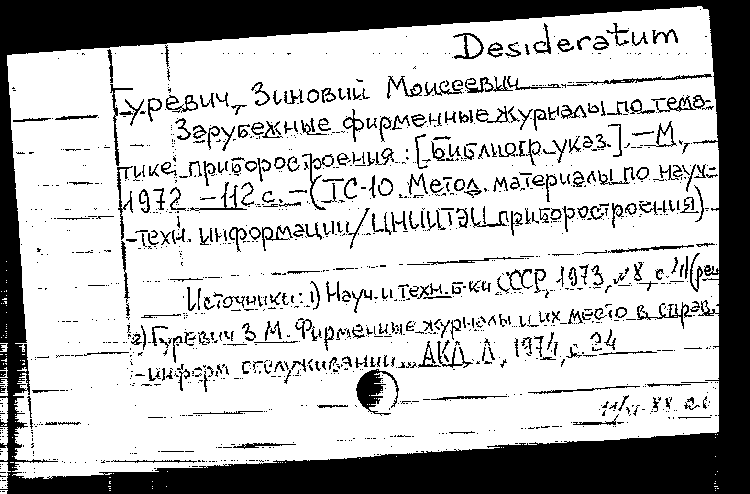 Desideratum
Гуревич, Зиновий Моисеевич
Зарубежные фирменные журналы по тема-
тике приборостроения : [Библиогр. указ.]. — М.,
1972 — 112 с. — (ТС-10. Метод. материалы по науч-
-техн. информации/ЦНИИТЭИ приборостроения)
Источники: 1) Науч. и техн. б-ки СССР, 1973, №8, с.
2) Гуревич З. М. Фирменные журналы и их место в справ.
-информ обслуживании... АКД. Л., 1974, с. 24